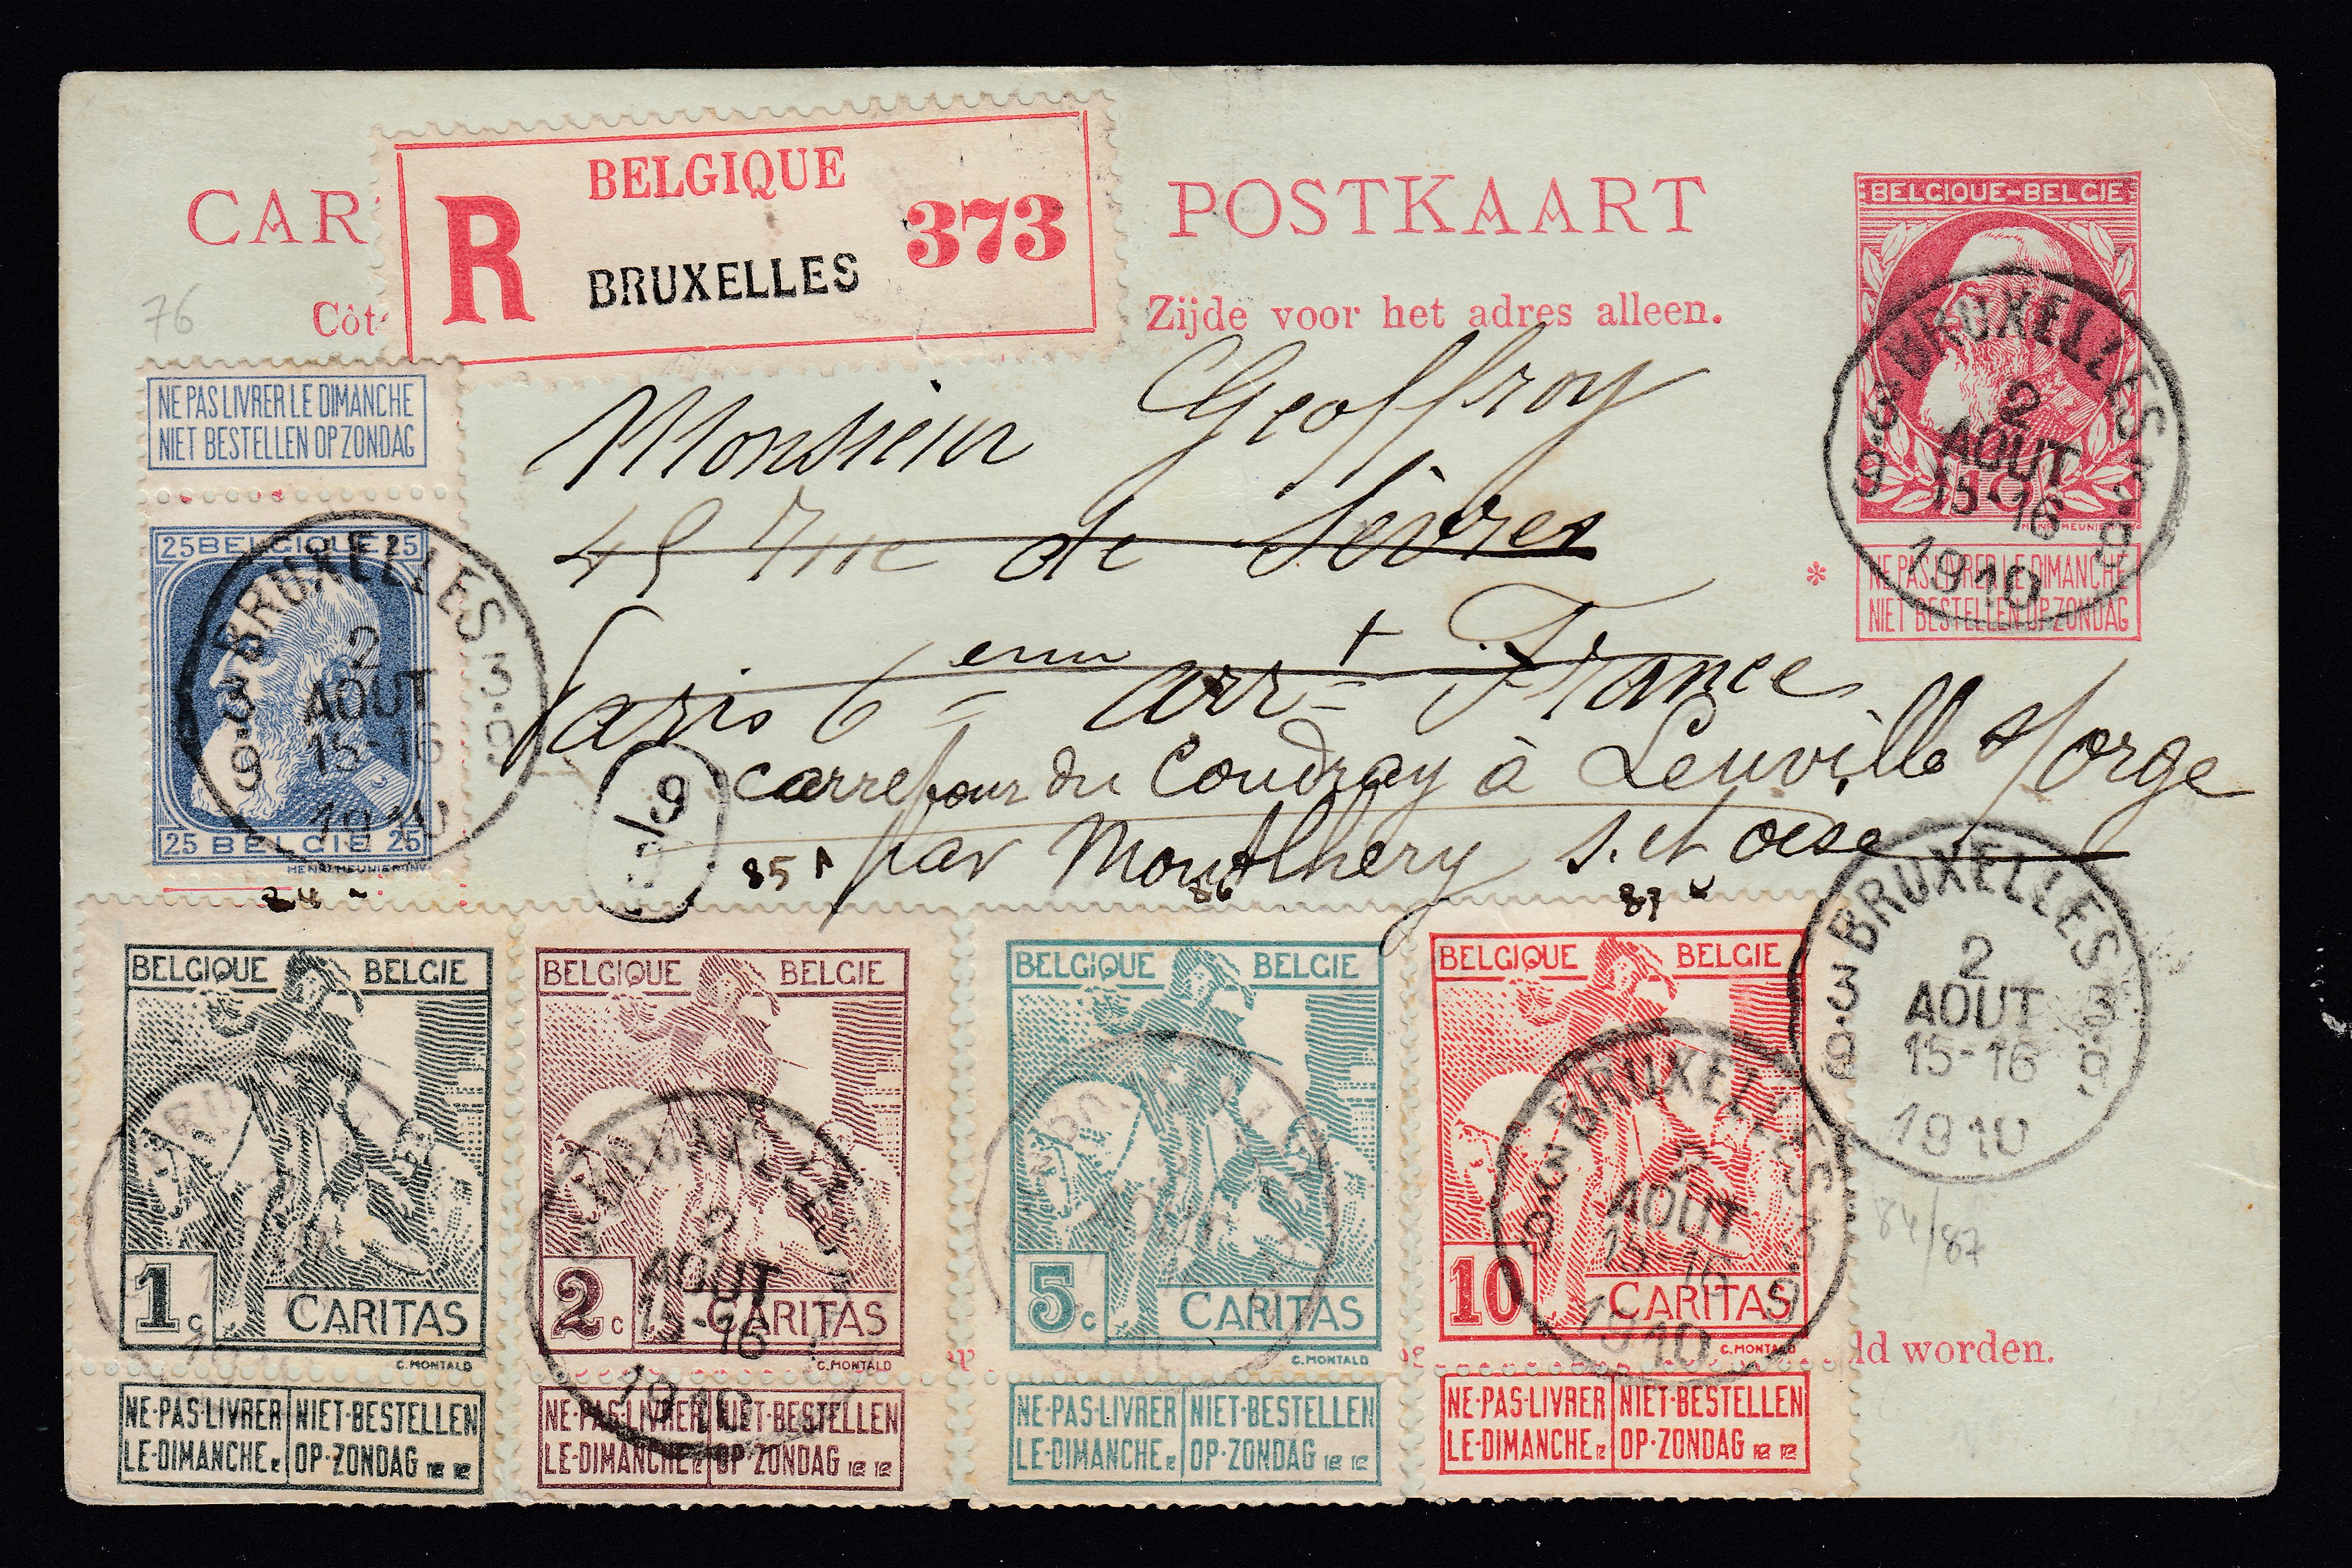 CAR
POSTKAART
Côt
Zijde voor het adres alleen.
BELGIQUE
R
373
BRUXELLES
76
BELGIQUE-BELGIE
10 10
HENRI MEUNIER
NE PAS LIVRER LE DIMANCHE
NIET BESTELLEN OP ZONDAG
*
BRUXELLES
9.3 3.9
2
AOUT
15-16
1910
NE PAS LIVRER LE DIMANCHE
NIET BESTELLEN OP ZONDAG
25 BELGIQUE 25
25 BELGIE 25
HENRI MEUNIER INV.
BRUXELLES
9.3 3.9
2
AOUT
15-16
1910
Monsieur Geoffroy
45 rue de Sèvres
Paris 6 eme arrt France
carrefour du Coudray à Leuville s/orge
par Montlhéry S. et oise
6
84
85
86
87
BRUXELLES
9.3 3.9
2
AOUT
15-16
1910
BELGIQUE BELGIE
1c CARITAS
C.MONTALD
NE·PAS·LIVRER NIET·BESTELLEN
LE·DIMANCHE OP·ZONDAG
BELGIQUE BELGIE
2c CARITAS
C.MONTALD
NE·PAS·LIVRER NIET·BESTELLEN
LE·DIMANCHE OP·ZONDAG
BRUXELLES
2
AOUT
15-16
1910
BELGIQUE BELGIE
5c CARITAS
C.MONTALD
NE·PAS·LIVRER NIET·BESTELLEN
LE·DIMANCHE OP·ZONDAG
BELGIQUE BELGIE
10 CARITAS
C.MONTALD
NE·PAS·LIVRER NIET·BESTELLEN
LE·DIMANCHE OP·ZONDAG
BRUXELLES
2
AOUT
15-16
1910
84/87
ld worden.